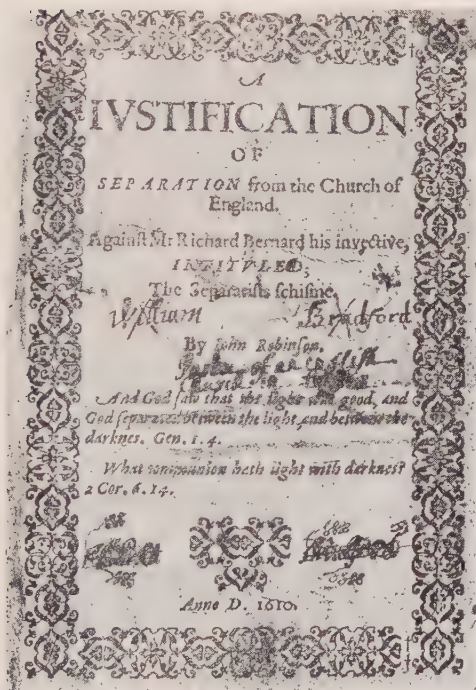 A
IVSTIFICATION
OF
SEPARATION from the Church of
England.
Againſt Mr Richard Bernard his invective,
INTITVLED;
The Separatiſts ſchiſme.
William Bradford
By John Robinſon.
And God ſaw that the light was good, and
God ſeparated between the light and between the
darknes. Gen. 1. 4.
What communion hath light with darknes?
2 Cor. 6. 14.
Anno D. 1610.